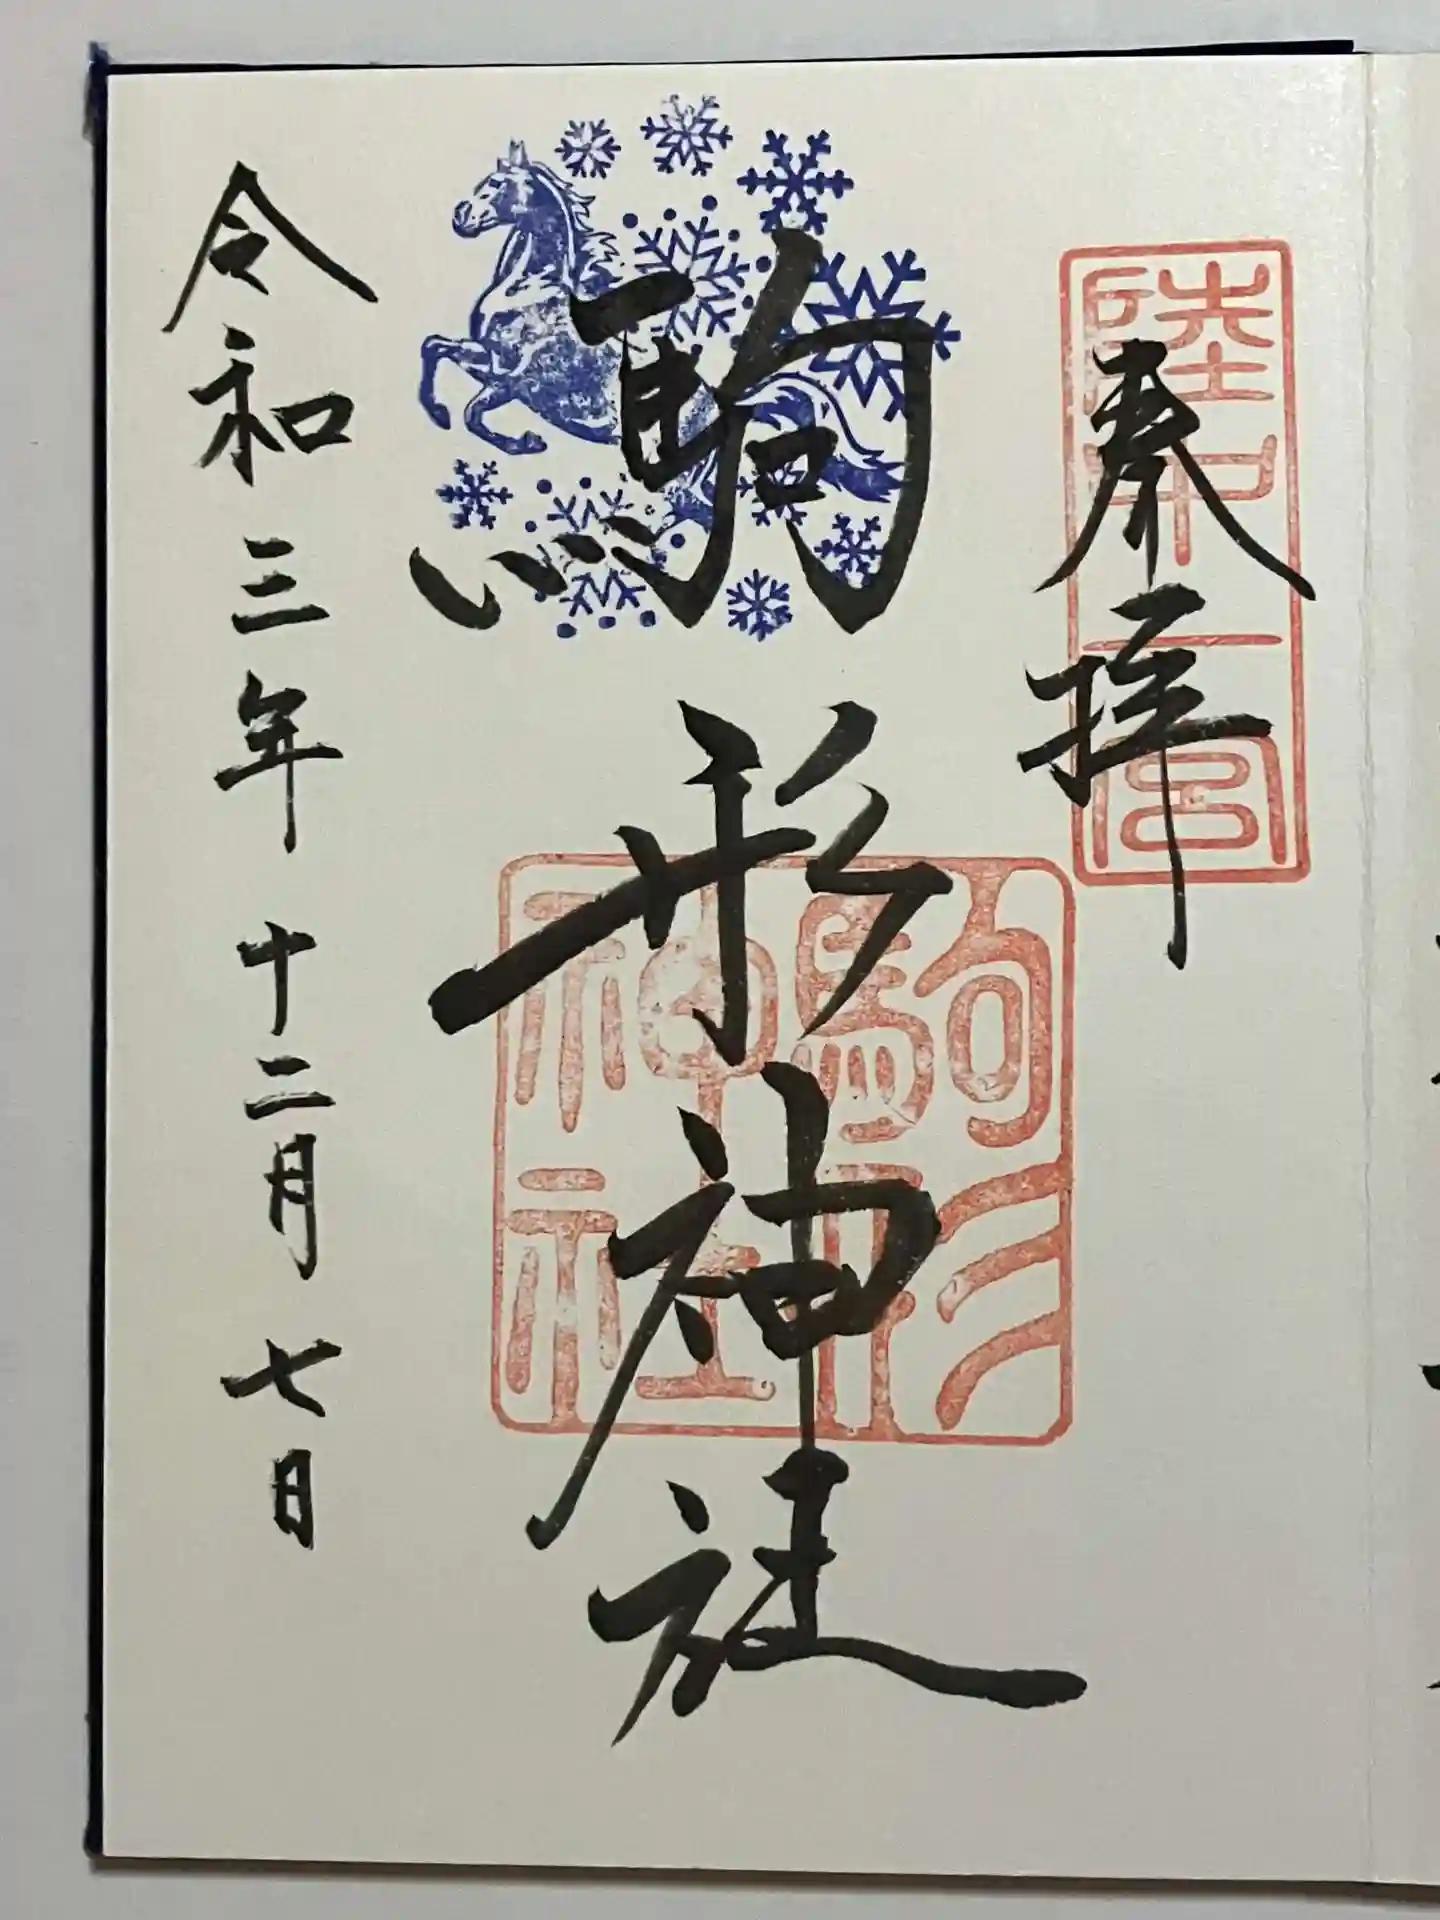 奉拝
陸中一宮
駒形神社
駒形
神社
令和三年十二月七日